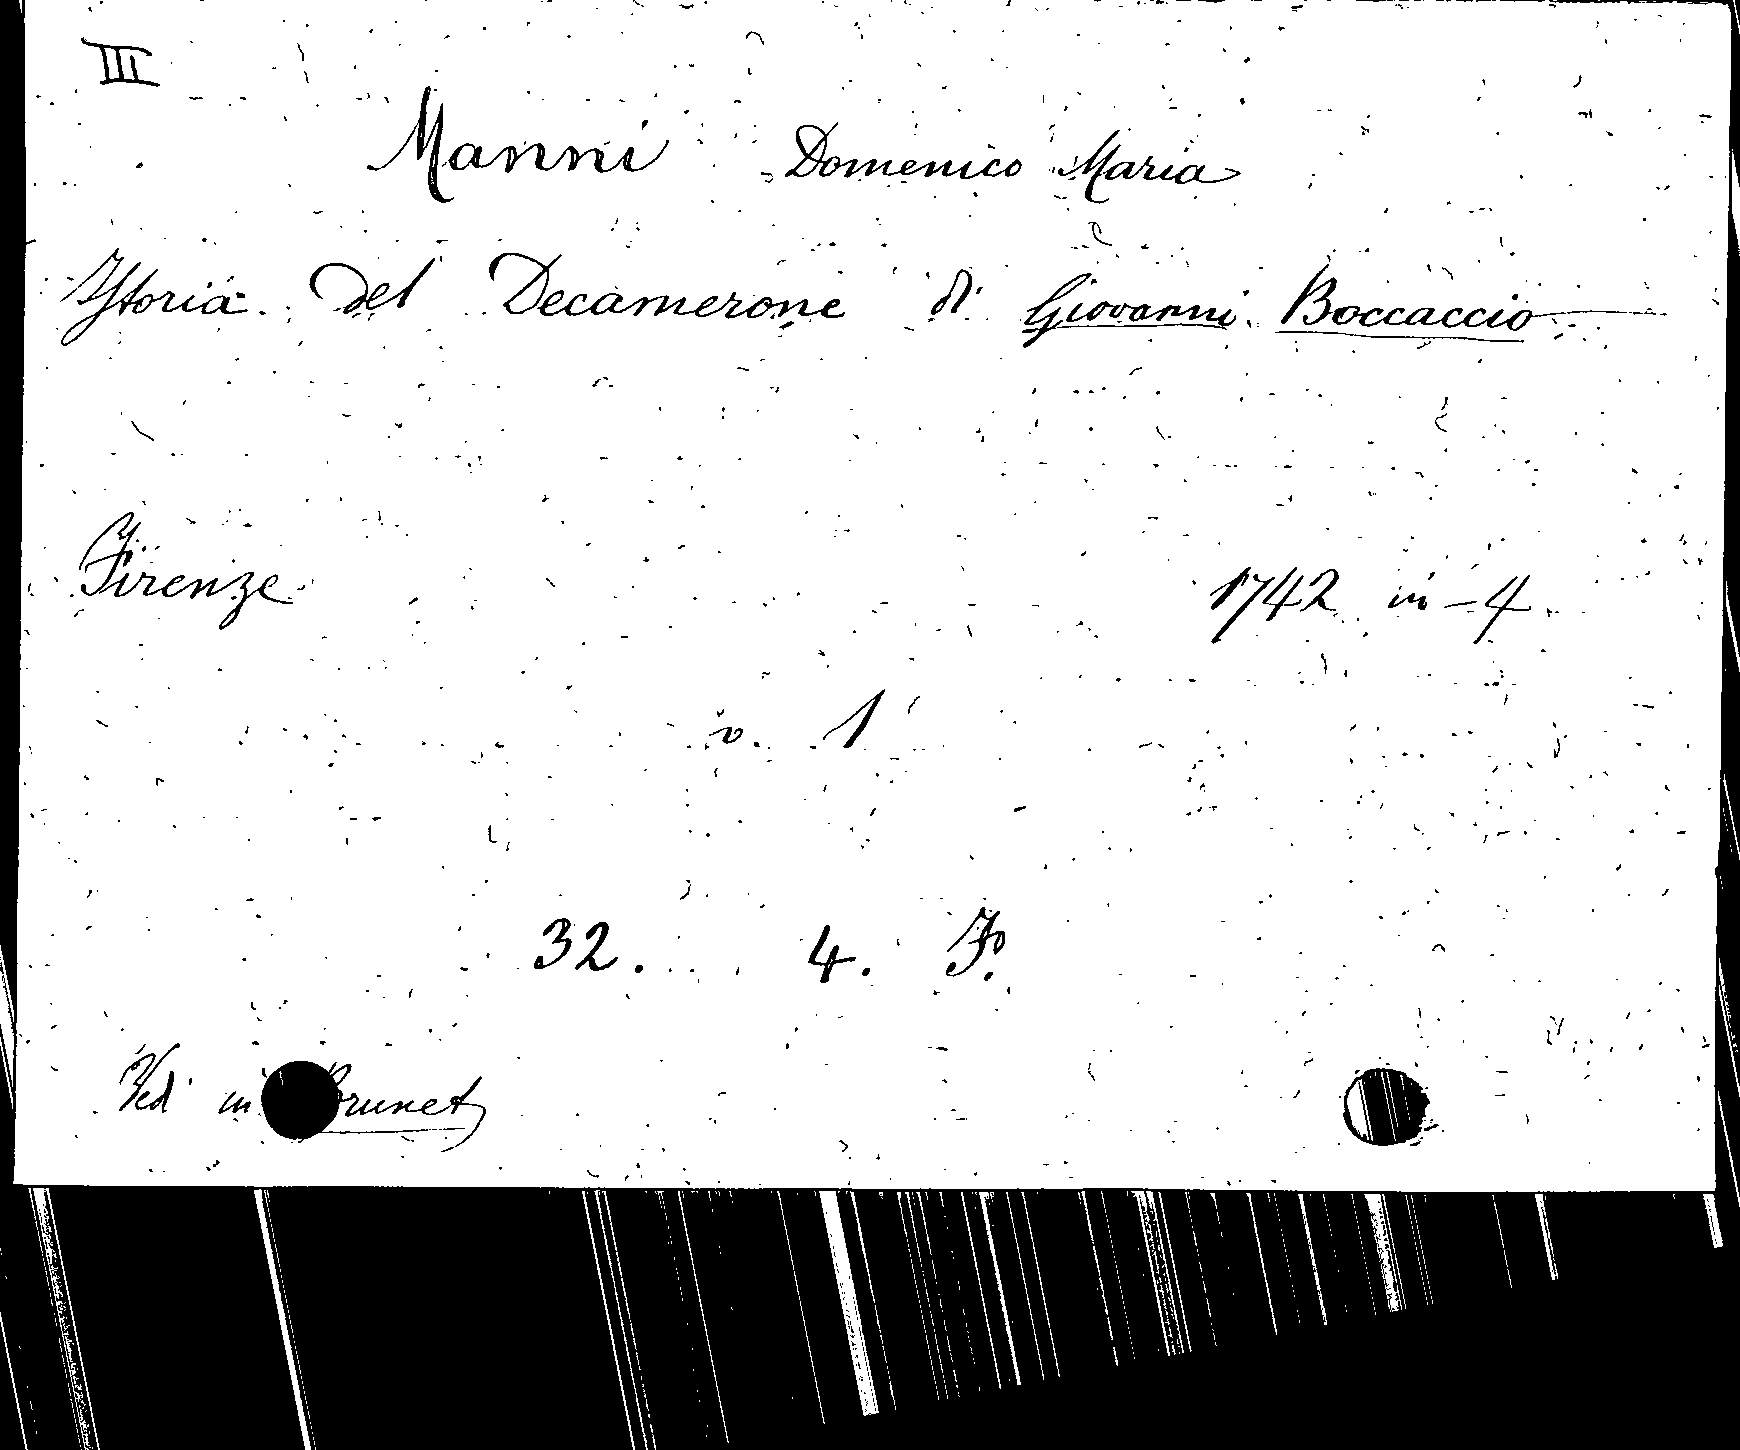 III
Manni Domenico Maria
Istoria del Decamerone di Giovanni Boccaccio
Firenze 1742 in-4
v. 1
32. 4. F.
Vedi in Brunet